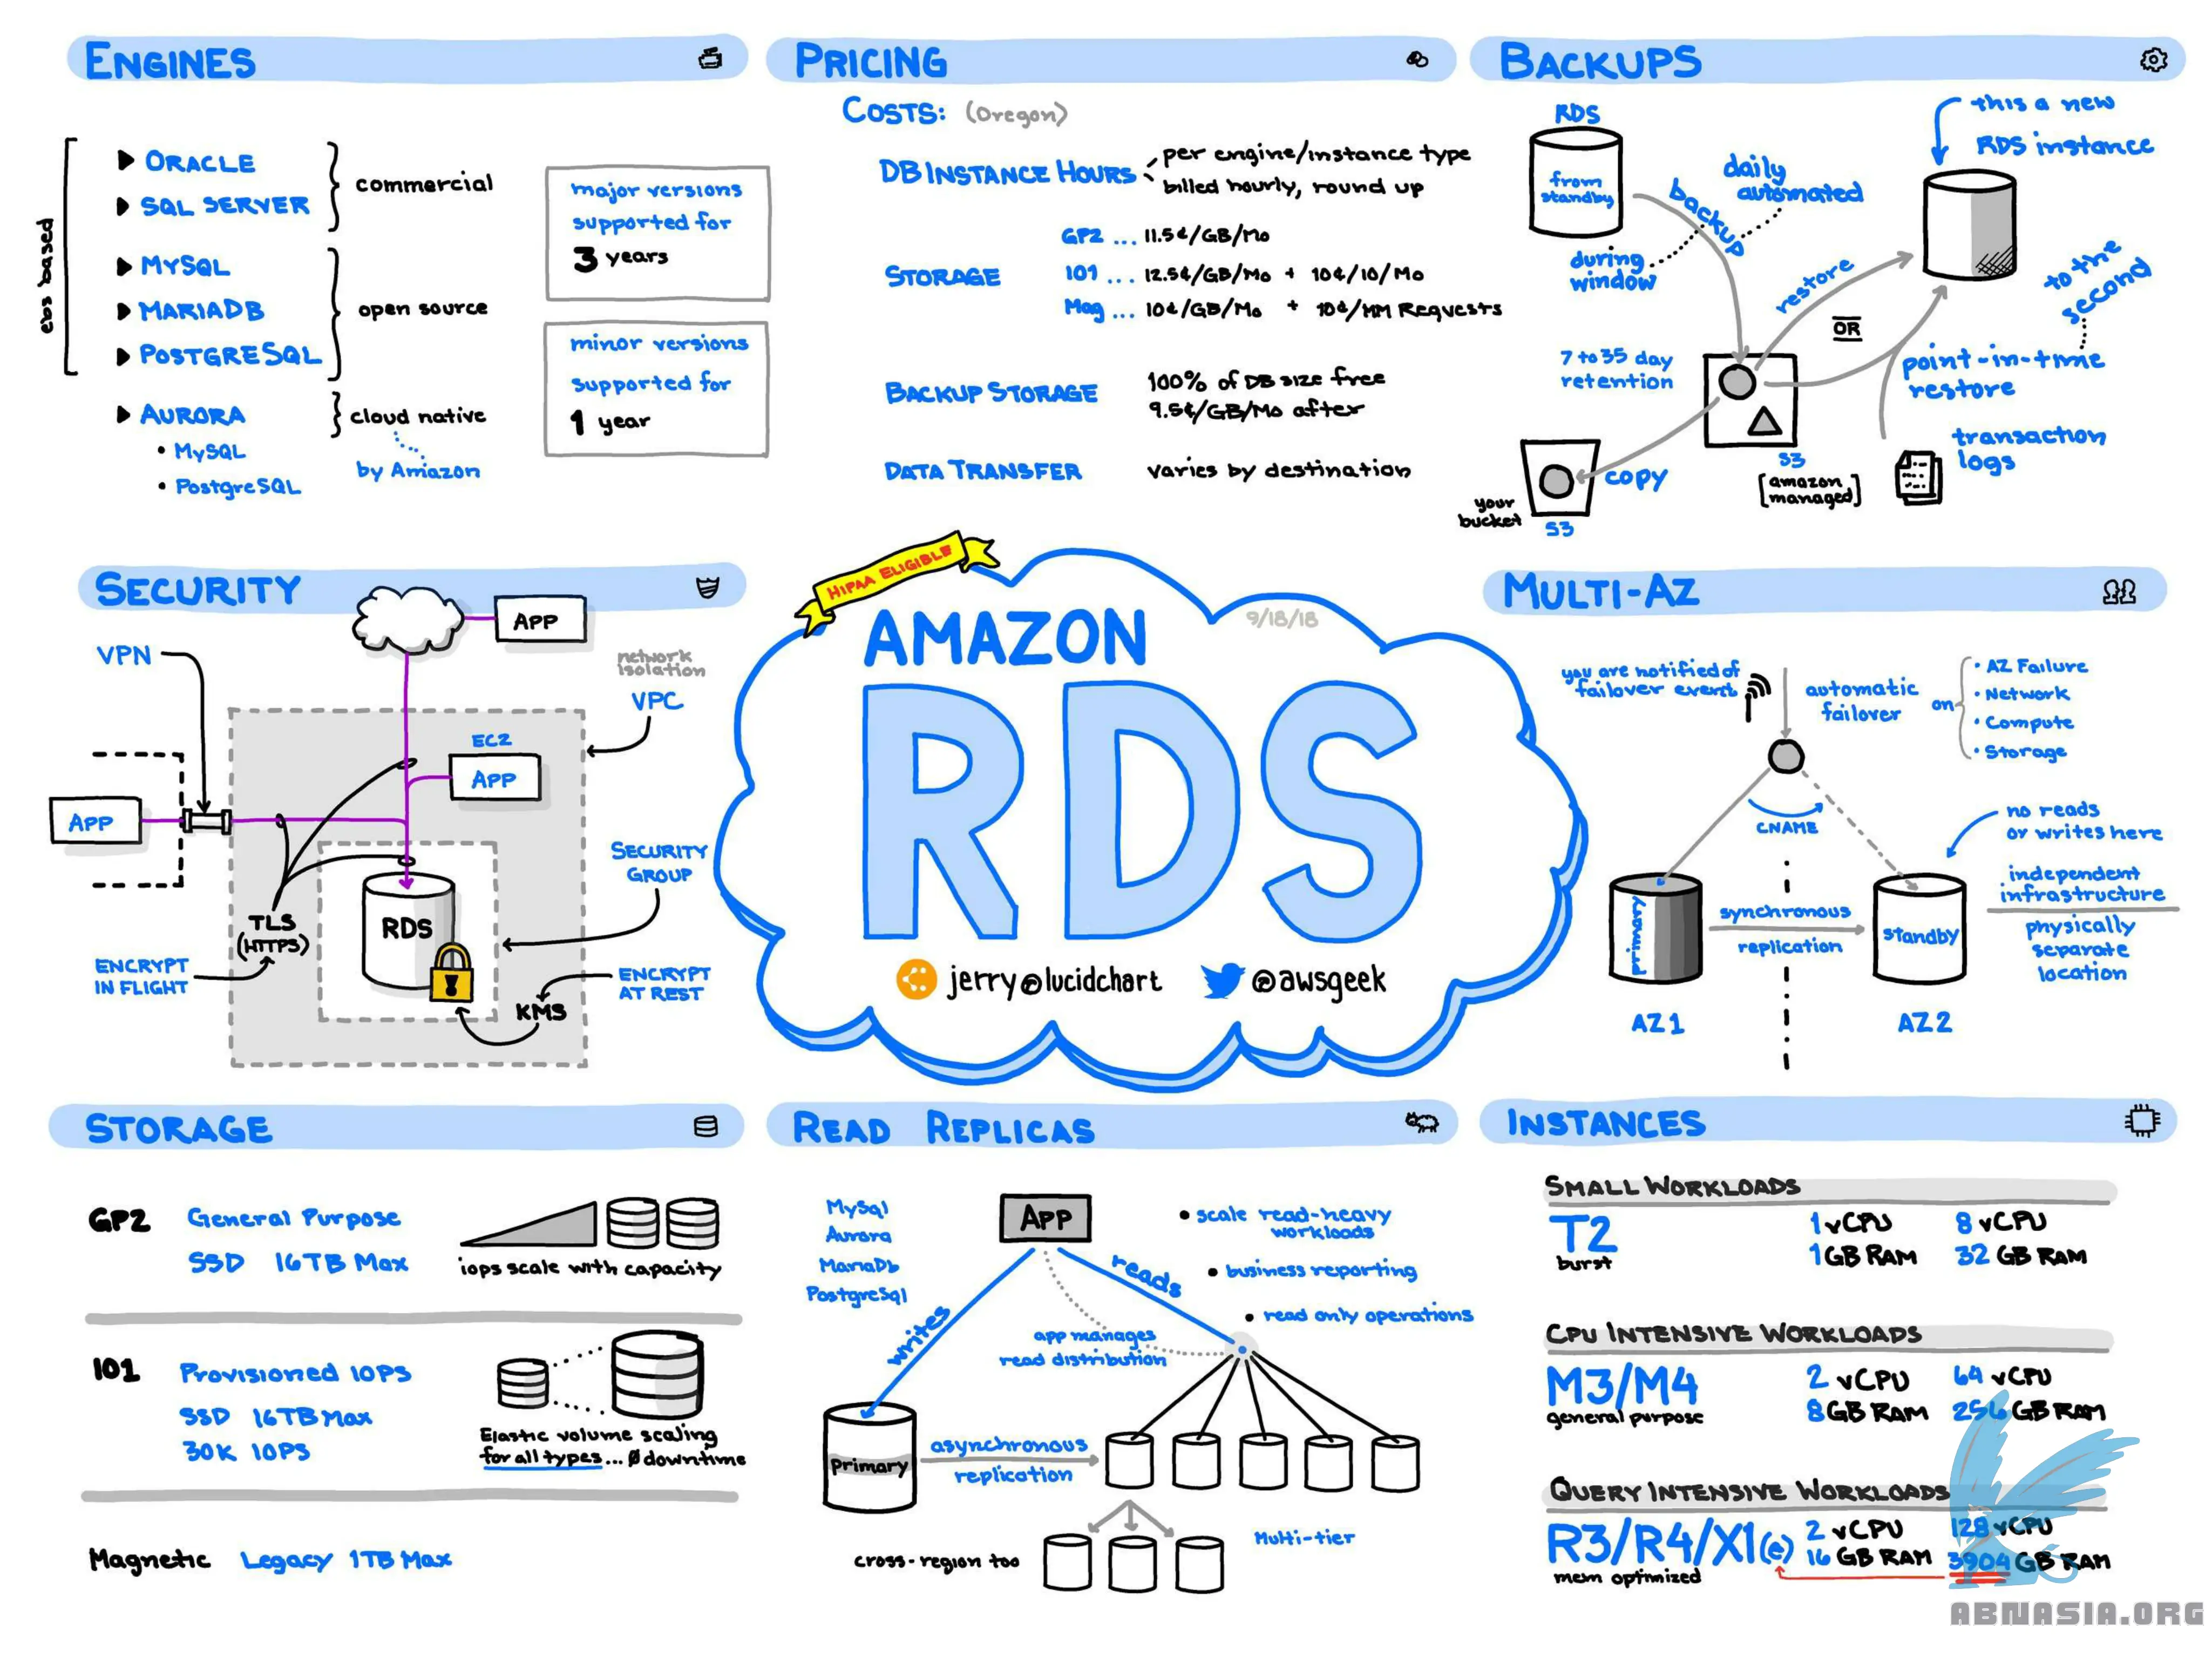 ENGINES
ebs based
ORACLE
SQL SERVER
commercial
MYSQL
MARIADB
POSTGRESQL
open source
AURORA
• MySQL
• PostgreSQL
cloud native
by Amazon
major versions
supported for
3 years
minor versions
supported for
1 year
PRICING
COSTS: (Oregon)
DB INSTANCE HOURS
per engine/instance type
billed hourly, round up
STORAGE
GP2 ... 11.5¢/GB/Mo
IO1 ... 12.5¢/GB/Mo + 10¢/IO/Mo
Mag ... 10¢/GB/Mo + 10¢/MM Requests
BACKUP STORAGE
100% of DB size free
9.5¢/GB/Mo after
DATA TRANSFER
varies by destination
BACKUPS
RDS
from
standby
during
window
backup
daily
automated
this a new
RDS instance
restore
OR
to the
second
point-in-time
restore
7 to 35 day
retention
transaction
logs
S3
[amazon
managed]
copy
your
bucket
S3
SECURITY
APP
VPN
network
isolation
VPC
EC2
APP
APP
SECURITY
GROUP
RDS
TLS
(HTTPS)
ENCRYPT
IN FLIGHT
ENCRYPT
AT REST
KMS
HIPAA ELIGIBLE
9/18/18
AMAZON
RDS
jerry@lucidchart
@awsgeek
MULTI-AZ
you are notified of
failover event
automatic
failover
on
• AZ Failure
• Network
• Compute
• Storage
CNAME
no reads
or writes here
primary
synchronous
replication
standby
independent
infrastructure
physically
separate
location
AZ1
AZ2
STORAGE
GP2
General Purpose
SSD 16TB Max
iops scale with capacity
IO1
Provisioned IOPS
SSD 16TB Max
30K IOPS
Elastic volume scaling
for all types... Ø downtime
Magnetic Legacy 1TB Max
READ REPLICAS
MySql
Aurora
MariaDb
PostgreSql
APP
• scale read-heavy
workloads
• business reporting
• read only operations
writes
reads
app manages
read distribution
primary
asynchronous
replication
cross-region too
Multi-tier
INSTANCES
SMALL WORKLOADS
T2
burst
1 vCPU
1 GB RAM
8 vCPU
32 GB RAM
CPU INTENSIVE WORKLOADS
M3/M4
general purpose
2 vCPU
8 GB RAM
64 vCPU
256 GB RAM
QUERY INTENSIVE WORKLOADS
R3/R4/X1(e)
mem optimized
2 vCPU
16 GB RAM
128 vCPU
3904 GB RAM
ABNASIA.ORG